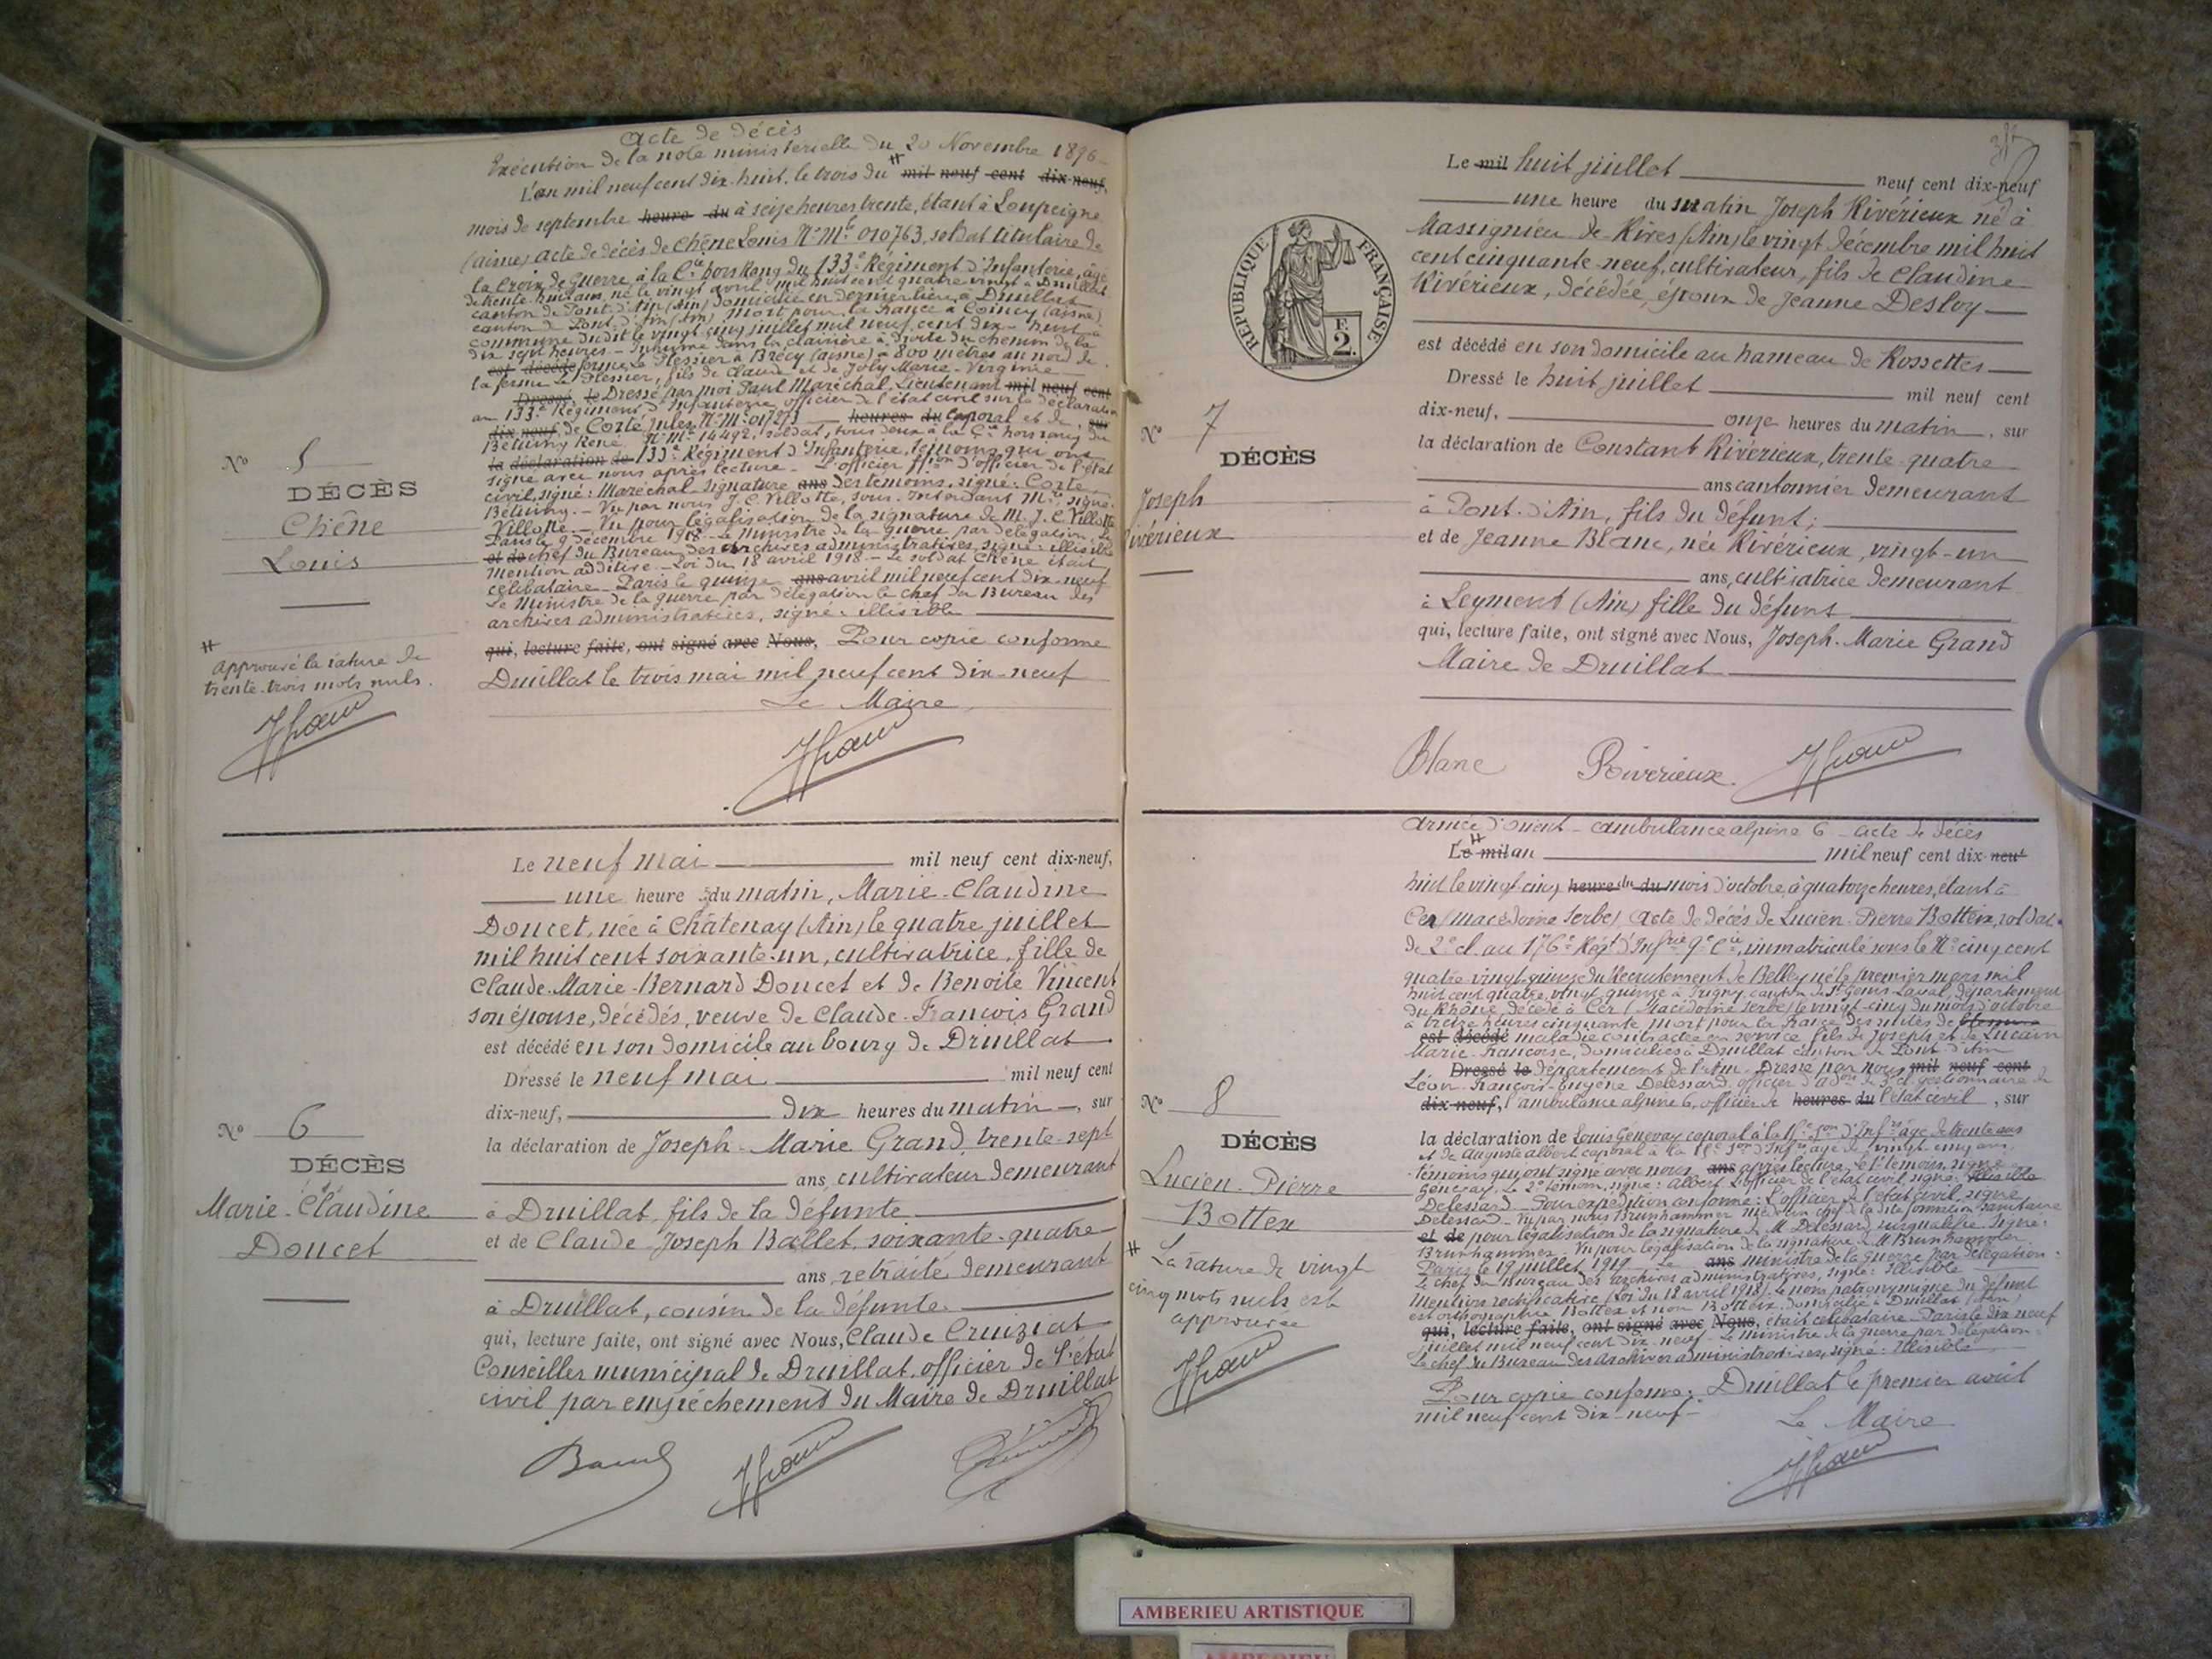 Acte de décès
Exécution de la note ministerielle du 20 Novembre 1896
L'an mil neuf cent dix-huit, le trois du # mil neuf cent dix-neuf,
mois de septembre heure du à seize heures trente, étant à Loupeigne
(aisne) acte de décès de Chêne Louis N° Mle 010763, soldat titulaire de
la Croix de Guerre, à la Cie hors Rang du 133e Régiment d'Infanterie, âgé
de trente-huit ans, né le vingt avril mil huit cent quatre vingt à Druillat
canton de Pont-d'Ain (Ain) domicilié en dernier lieu à Druillat
canton de Pont-d'Ain (Ain) Mort pour la France à Coincy (aisne)
commune dudit le vingt cinq juillet mil neuf cent dix-huit à
dix sept heures - Inhumé dans la clairière à droite du chemin de la
est décédé ferme Le Plessier à Brécy (aisne) à 800 mètres au nord de
la ferme Le Plessier, fils de Claude et de Joly Marie-Virginie
Dressé le Dressé par moi Paul Maréchal, Lieutenant mil neuf cent
au 133e Régiment d'Infanterie, officier de l'état civil sur la déclaration
dix-neuf, de Corté Jules N° Mle 017273 heures du caporal et de, sur
Bétuiny René N° Mle 14492, soldat, tous deux à la Cie hors rang du
la déclaration de 133e Régiment d'Infanterie, témoins qui ont
signé avec nous après lecture - L'officier d'officier de l'état
civil, signé: Maréchal - signature ans des témoins, signé: Corte
Bétuiny. - Vu par nous J. C. Villotte, sous-Intendant Mre signé:
Villotte. - Vu pour légalisation de la signature de M. J. C. Villotte
Paris le 9 décembre 1918 - Le Ministre de la guerre par délégation, Le
et de chef du Bureau des archives administratives, signé: illisible
Mention additive - Loi du 18 avril 1918 - Le soldat Chêne était
célibataire - Paris le quinze ans avril mil neuf cent dix-neuf
Le Ministre de la guerre par délégation le chef du Bureau des
archives administratives, signé: illisible
qui, lecture faite, ont signé avec Nous, Pour copie conforme
Druillat le trois mai mil neuf cent dix-neuf
Le Maire,
N° 5
DÉCÈS
Chêne
Louis
#
approuvé la rature de
trente-trois mots nuls.
Le neuf mai mil neuf cent dix-neuf,
une heure du matin, Marie-Claudine
Doucet, née à Châtenay (Ain) le quatre juillet
mil huit cent soixante-un, cultivatrice, fille de
Claude-Marie-Bernard Doucet et de Benoite Vincent
son épouse, décédés, veuve de Claude-François Grand
est décédé en son domicile au bourg de Druillat
Dressé le neuf mai mil neuf cent
dix-neuf, dix heures du matin, sur
la déclaration de Joseph-Marie Grand, trente-sept
ans, cultivateur demeurant
à Druillat, fils de la défunte
et de Claude-Joseph Ballet, soixante-quatre
ans, retraité, demeurant
à Druillat, cousin de la défunte
qui, lecture faite, ont signé avec Nous, Claude Cruiziat
Conseiller municipal de Druillat, officier de l'état
civil par empêchement du Maire de Druillat
N° 6
DÉCÈS
Marie-Claudine
Doucet
REPUBLIQUE FRANÇAISE
F.
2.
Le mil huit juillet neuf cent dix-neuf
une heure du matin Joseph Rivérieux né à
Massignieu de Rives (Ain) le vingt décembre mil huit
cent cinquante-neuf, cultivateur, fils de Claudine
Rivérieux, décédée, époux de Jeanne Desloy
est décédé en son domicile au hameau de Rossettes
Dressé le huit juillet mil neuf cent
dix-neuf, onze heures du matin, sur
la déclaration de Constant Rivérieux, trente-quatre
ans cantonnier demeurant
à Pont-d'Ain, fils du défunt;
et de Jeanne Blanc, née Rivérieux, vingt-un
ans, cultivatrice demeurant
à Leyment (Ain) fille du défunt
qui, lecture faite, ont signé avec Nous, Joseph-Marie Grand
Maire de Druillat
Blanc Rivérieux
N° 7
DÉCÈS
Joseph
ivérieux
Armée d'Orient - ambulance alpine 6 - acte de décès
Le # mil an mil neuf cent dix-neuf
huit le vingt-cinq heure du du mois d'octobre à quatorze heures, étant à
Cer (Macédoine Serbe) acte de décès de Lucien-Pierre Botteix, soldat
de 2e cl. au 176e Régt d'Infrie 9e Cie, immatriculé sous le N° cinq cent
quatre vingt quinze du Recrutement de Belley né le premier mars mil
huit cent quatre vingt quinze à Irigny, canton de St Genis-Laval, département
du Rhône, décédé à Cer (Macédoine Serbe) le vingt-cinq du mois d'octobre
à treize heures cinquante, mort pour la France des suites de blessures
est décédé maladie contractée en service, fils de Joseph et de Lucain
Marie-Françoise, domiciliés à Druillat canton de Pont-d'Ain
Dressé le département de l'Ain. Dressé par nous mil neuf cent
Léon-François-Eugène Delessard, officier d'adon de 3e cl. gestionnaire de
dix-neuf, l'ambulance alpine 6, officier de heures du l'état civil, sur
la déclaration de Louis Genevay caporal à la d'Infrie âgé de trente ans
et de Auguste Albert caporal à la d'Infrie, âgé de vingt-cinq ans,
témoins qui ont signé avec nous ans après lecture. Le 1er témoin, signé
Genevay. Le 2e témoin, signé: Albert L'officier de l'état civil, signé: illisible
Delessard - Pour expédition conforme: L'officier de l'état civil, signé
Delessard - Vu par nous Brunhammer médecin chef de la dite formation sanitaire
et de pour légalisation de la signature de M. Delessard, susqualifié. Signé:
Brunhammer. Vu pour légalisation de la signature de M. Brunhammer
Paris le 19 juillet 1919 Le ans ministre de la guerre par délégation:
Le chef du Bureau des archives administratives, signé: illisible
Mention rectificative (Loi du 18 avril 1918). Le nom patronymique du défunt
est orthographié Bottex et non Botteix. Domicilié à Druillat (Ain)
qui, lecture faite, ont signé avec Nous, était célibataire - Paris le dix-neuf
juillet mil neuf cent dix-neuf - Le ministre de la guerre par délégation
Le chef du Bureau des archives administratives, signé: illisible
Pour copie conforme: Druillat le premier août
mil neuf cent dix-neuf
Le Maire
N° 8
DÉCÈS
Lucien-Pierre
Bottex
#
La rature de vingt
cinq mots nuls est
approuvée
AMBERIEU ARTISTIQUE
AMBERIEU